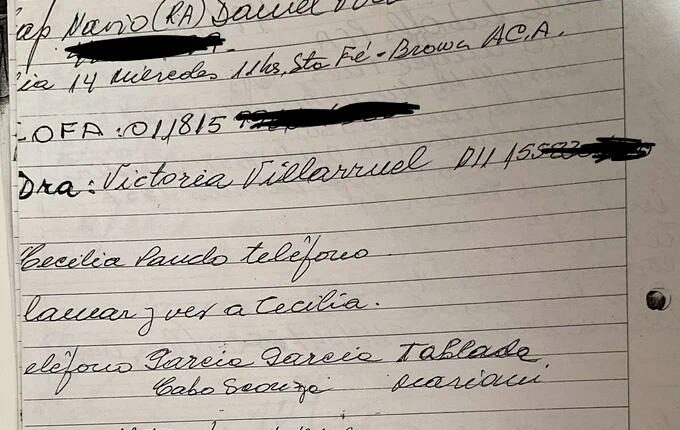 ap. Navio (RA) Daniel
ia 14 Miercoles 11hs, Sta Fé - Brown ACA.
OFA: 011/815
Dra: Victoria Villarruel 011/15
Cecilia Pando teléfono
lamar y ver a Cecilia.
eléfono Garcia Garcia Tablada
Cabo